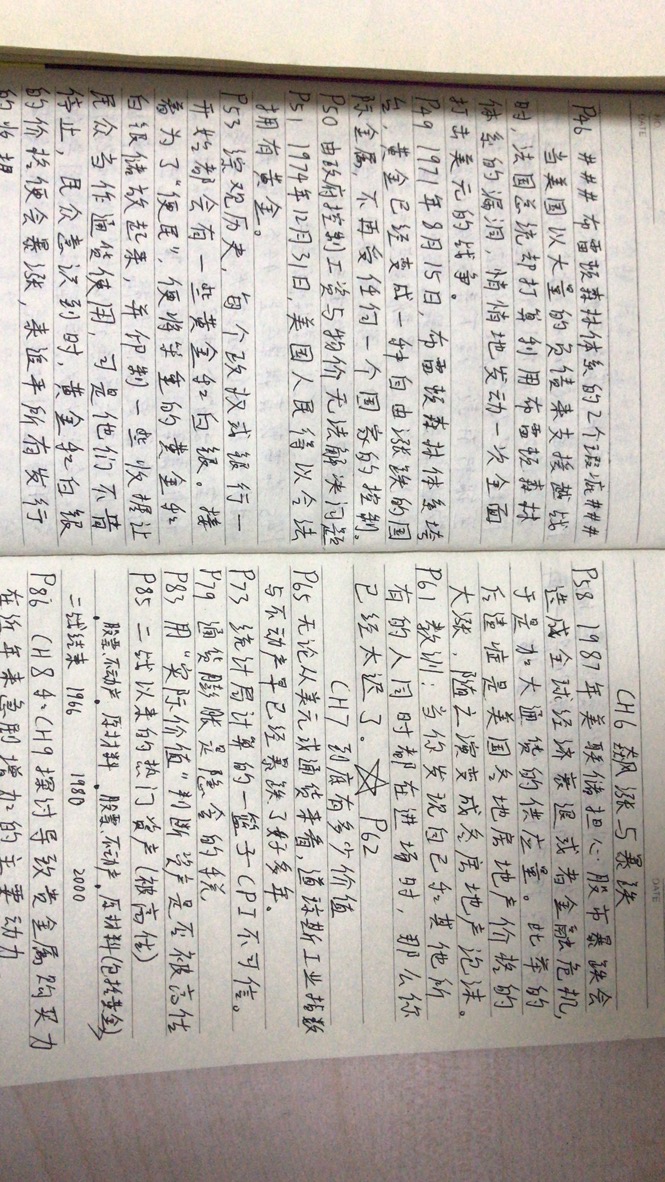 P46 ###布雷顿森林体系的2个瑕疵###
当美国以大量的负债来支援越战
时,法国总统却打算利用布雷顿森林
体系的漏洞,悄悄地发动一次全面
打击美元的战争。
P49 1971年8月15日 布雷顿森林体系垮
台,黄金已经变成一种自由涨跌的国
际金属,不再受任何一个国家的控制。
P50 由政府控制工资与物价无法解决问题
P51 1974年12月31日,美国人民得以合法
拥有黄金。
P53 综观历史,每个政权或银行一
开始都会有一些黄金和白银。接
着为了“便民”,便将笨重的黄金和
白银储放起来,并印制一些收据让
民众当作通货使用,可是他们不曾
停止,民众意识到时,黄金和白银
的价格便会暴涨,来追平所有发行
的收据
CH6 飙涨与暴跌
P58 1987年美联储担心股市暴跌会
造成全球经济衰退或者金融危机,
于是加大通货的供应量。此举的
后遗症是美国各地房地产价格的
大涨,随之演变成为房地产泡沫。
P61 教训:当你发现自己和其他所
有的人同时都在进场时,那么你
已经太迟了。☆ P62
CH7 到底有多少价值
P65 无论从美元或通货来看,道琼斯工业指数
与不动产早已经暴跌了好多年。
P73 统计局计算的一篮子CPI不可信。
P79 通货膨胀是隐含的税
P83 用“实际价值”判断资产是否被高估
P85 二战以来的热门资产(被高估)
股票、不动产。原材料。股票、不动产。原材料(包括黄金)
二战结束 1966 1980 2000
P86 CH8和CH9探讨导致贵金属购买力
在近年来急剧增加的主要动力
DATE
DATE